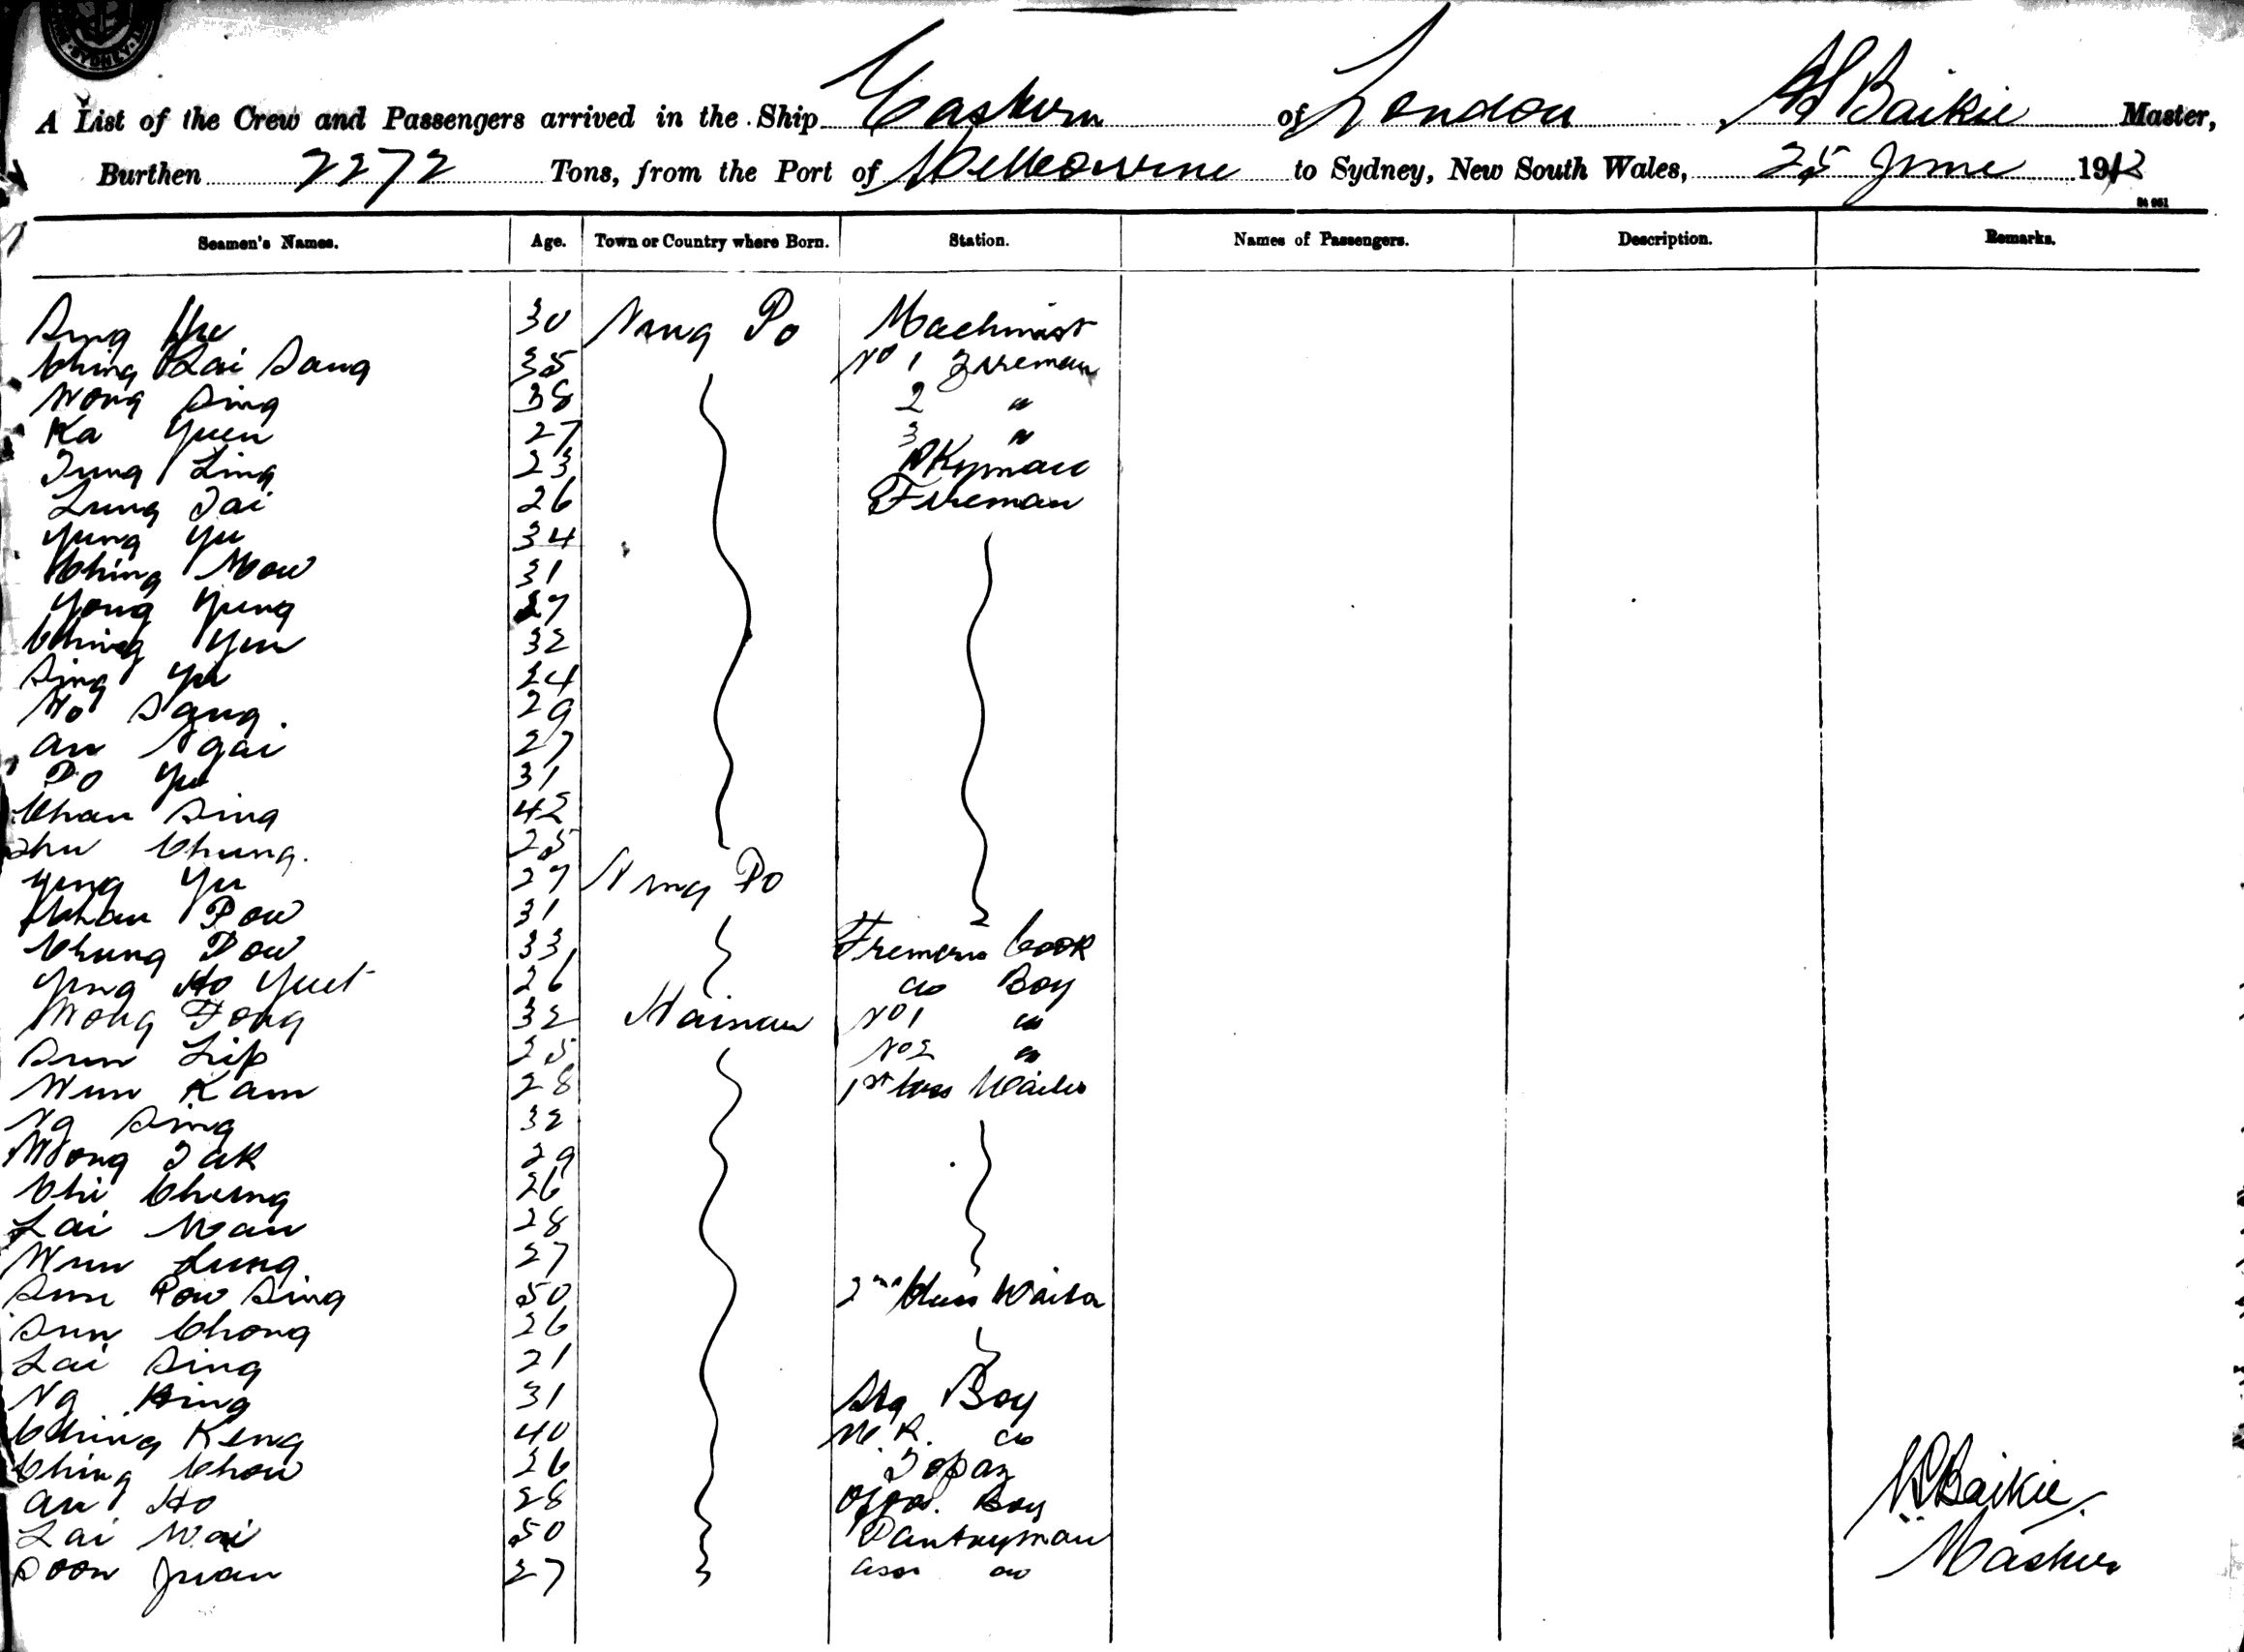 SYDNEY
A List of the Crew and Passengers arrived in the Ship Eastern of London Baikie Master,
Burthen 2272 Tons, from the Port of Melbourne to Sydney, New South Wales, 25 June 1912
Seamen's Names. Age. Town or Country where Born. Station. Names of Passengers. Description. Remarks.
Sing 30 Ning Po Machinist
Ching Lai Sang 35 No 1 Fireman
Wong Sing 38 2 "
Ka Yuen 27 3 "
Tung Ling 23 Dkyman
Lung Tai 26 Fireman
Yung Yu 34
Ching Mow 31
Yong Yung 27
Ching Yuu 32
Sing Yu 24
Ho Sang. 29
au Ngai 27
Po Yu 31
Chan Sing 42
Chung. 25
Yung Yu 27 Ning Po
Chan Pow 31
Chung Pow 33 Firemens Cook
Ying Ho Yuet 26 do Boy
Wong Fong 32 Hainau No 1 do
Sun Lip 25 No 2 do
Wun Kam 28 1st Class Waiter
Ng Sing 32
Wong Tak 29
Chi Chung 26
Lai Man 28
Wun Lung 27
Sun Pow Sing 50 2nd Class Waiter
Sun Chong 26
Lai Sing 21
Ng Hing 31 Stg Boy
Ching Keng 40 M. R. do
Ching Chow 26 Topaz
au Ho 28 Boy
Lai Wai 50 Pantryman
Poon Juan 27 asst do
Baikie
Master